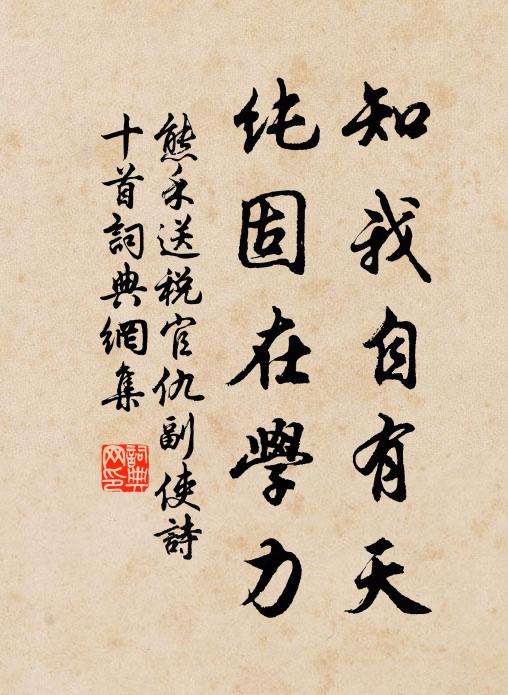 知我自有天
纯固在學力
熊禾送税官仇副使詩
十首詞典網集
詞典
网印